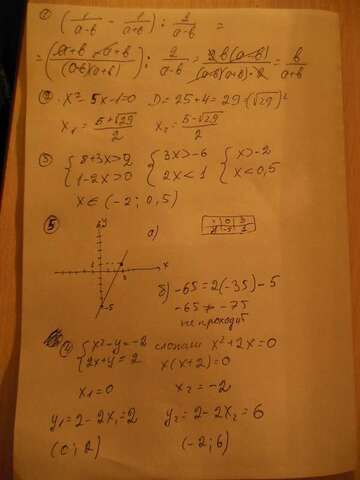 ① (1/(a-b) - 1/(a+b)) : 2/(a-b) =
= ((a+b-a+b)/((a-b)(a+b))) : 2/(a-b) = 2b(a-b)/((a-b)(a+b)·2) = b/(a+b)
② x² - 5x - 1 = 0 D = 25+4 = 29 (√29)²
x₁ = (5+√29)/2 x₂ = (5-√29)/2
③ { 8+3x>2 { 3x>-6 { x>-2
{ 1-2x>0 { 2x<1 { x<0,5
x ∈ (-2; 0,5)
⑤ y а) x | 0 | 3
y | -5 | 1
x
-5
б) -65 = 2(-35) - 5
-65 ≠ -75
не проходит
④ { x²-y=-2 сложим x²+2x=0
{ 2x+y=2 x(x+2)=0
x₁=0 x₂=-2
y₁=2-2x₁=2 y₂=2-2x₂=6
(0; 2) (-2; 6)